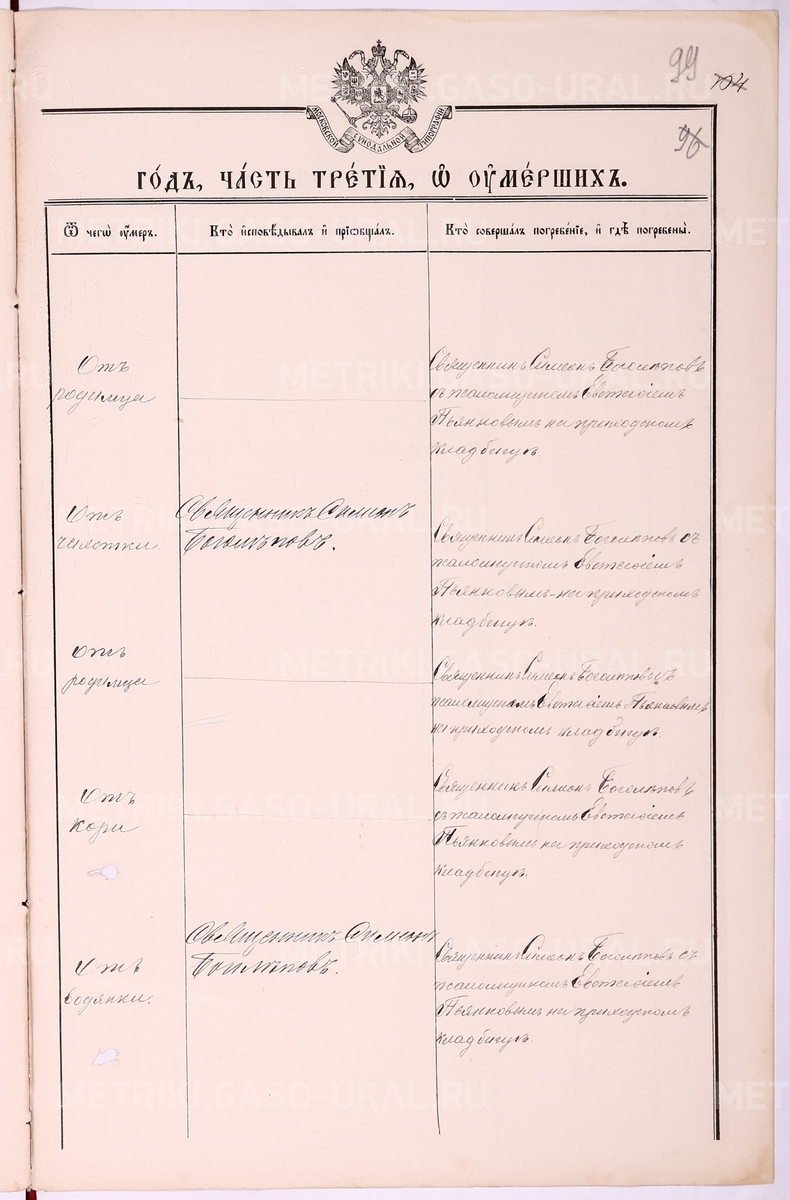 99 104
96
МОСКОВСКОЙ СѴНОДАЛЬНОЙ ТИПОГРАФІИ
ГО́ДЪ, ЧА́СТЬ ТРЕ́ТІЯ, Ѡ҆ ОУ҆МЕ́РШИХЪ.
Ѿ чегѡ̀ оу҆́меръ.
Кто̀ и҆сповѣ́дывалъ и҆ прїѡбща́лъ.
Кто̀ соверша́лъ погребе́нїе, и҆ гдѣ̀ погребены̀.
Отъ
родимца
Священникъ Симеонъ Боголѣповъ
съ псаломщикомъ Евѳиміемъ
Пьянковымъ на приходскомъ
кладбищѣ.
Отъ
чахотки.
Священникъ Симеонъ
Боголѣповъ.
Священникъ Симеонъ Боголѣповъ съ
псаломщикомъ Евѳиміемъ
Пьянковымъ на приходскомъ
кладбищѣ.
Отъ
родимца
Священникъ Симеонъ Боголѣповъ съ
псаломщикомъ Евѳиміемъ Пьянковымъ
на приходскомъ кладбищѣ.
Отъ
кори
Священникъ Симеонъ Боголѣповъ
съ псаломщикомъ Евѳиміемъ
Пьянковымъ на приходскомъ
кладбищѣ.
Отъ
водянки.
Священникъ Симеонъ
Боголѣповъ.
Священникъ Симеонъ Боголѣповъ съ
псаломщикомъ Евѳиміемъ
Пьянковымъ на приходскомъ
кладбищѣ.
METRIKI.GASO-URAL.RU